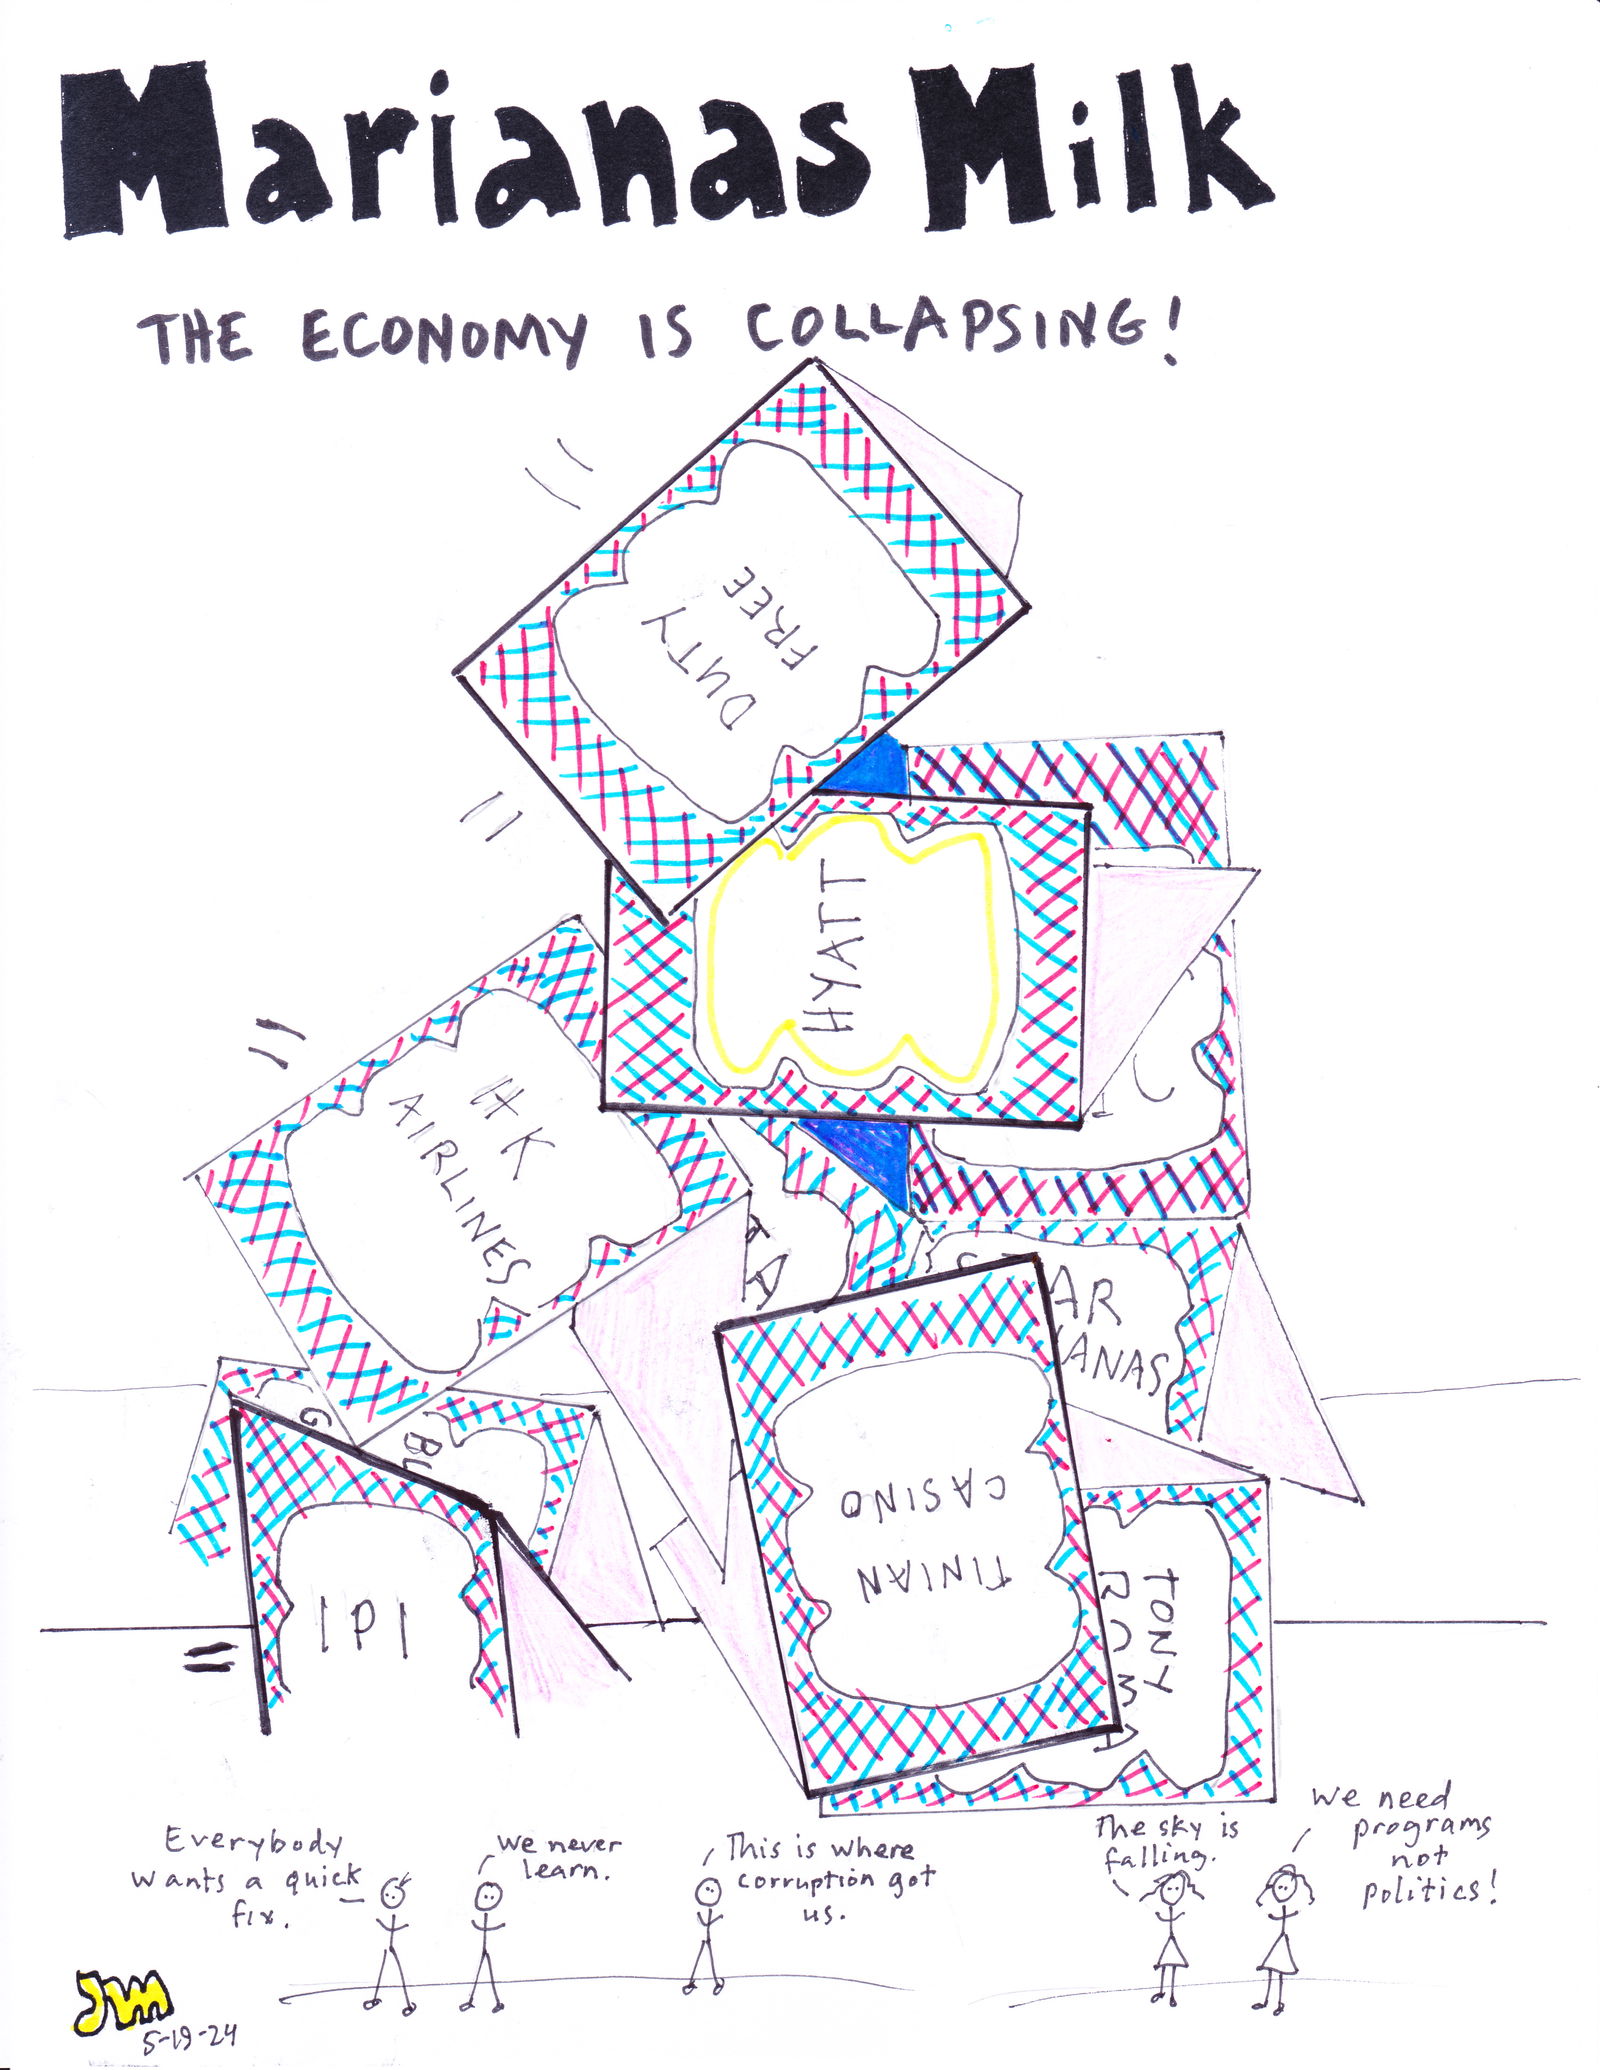 Marianas Milk
THE ECONOMY IS COLLAPSING!
DUTY
FREE
HYATT
HK
AIRLINES
AR
ANAS
G
BU
IPI
TINIAN
CASINO
TONY
Everybody
wants a quick
fix.
We never
learn.
This is where
corruption got
us.
The sky is
falling.
We need
programs
not
politics!
JWM
5-19-24